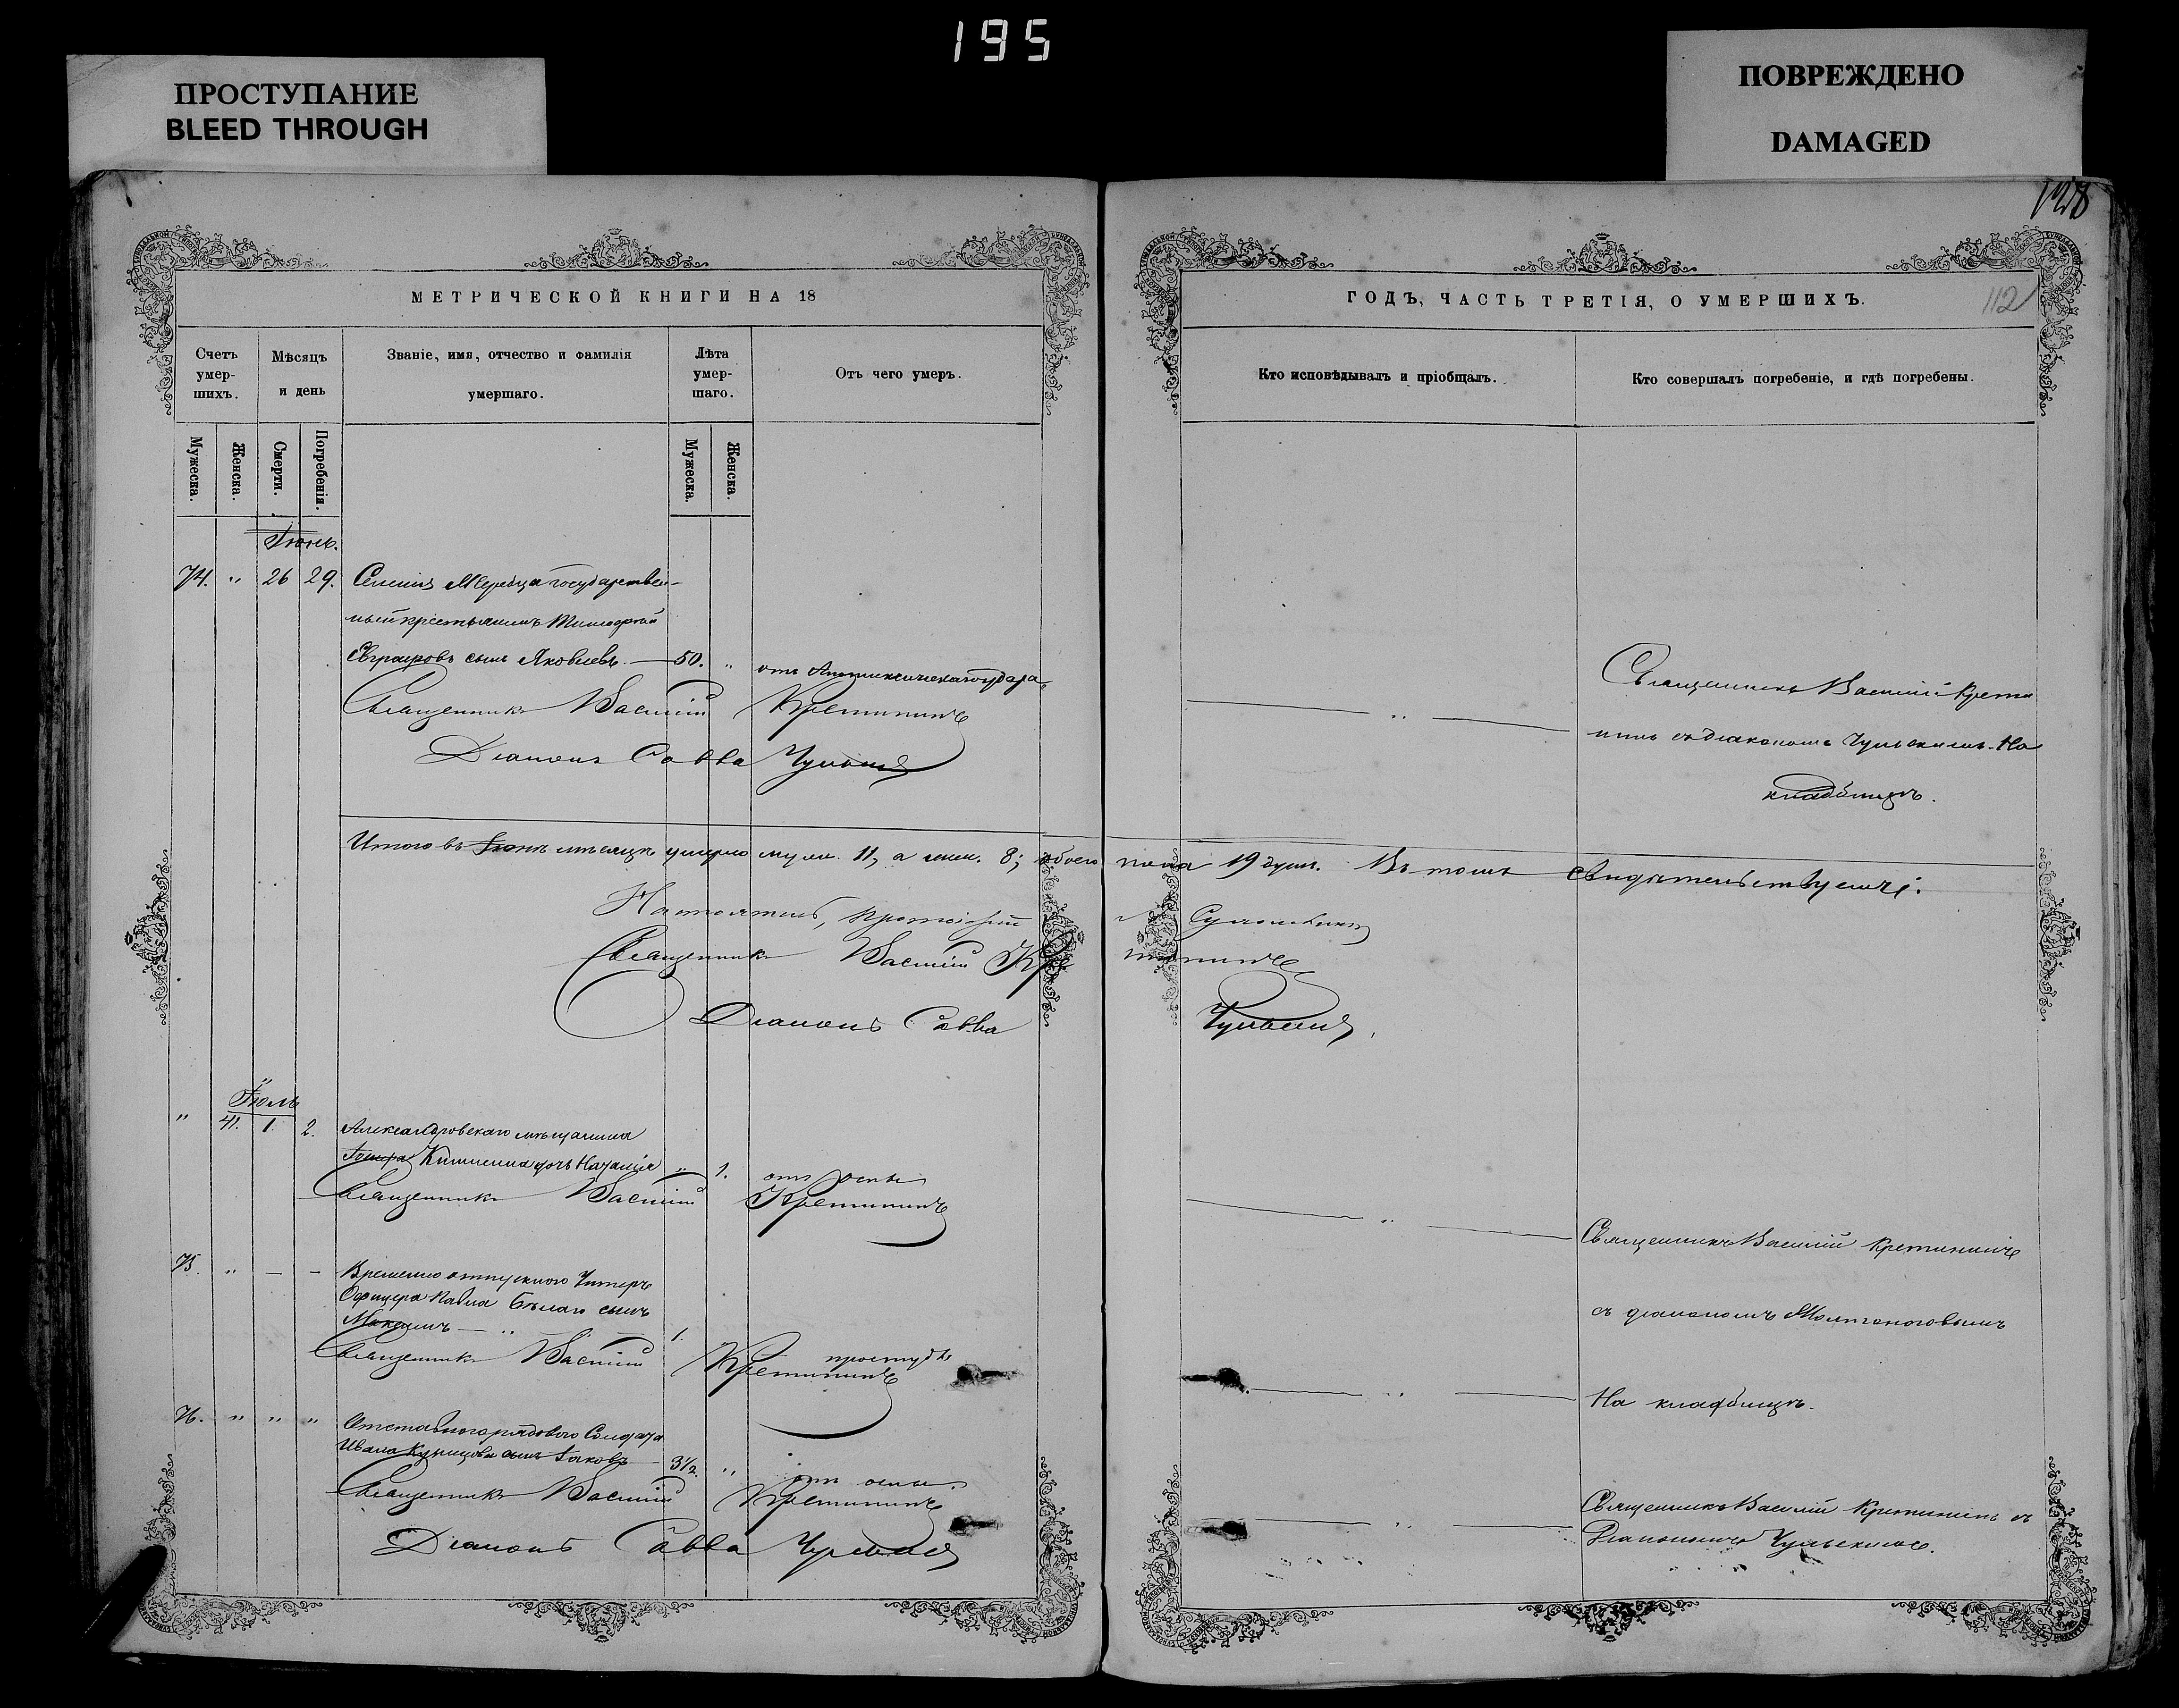 195
ПРОСТУПАНИЕ
BLEED THROUGH
ПОВРЕЖДЕНО
DAMAGED
МЕТРИЧЕСКОЙ КНИГИ НА 18
Счетъ умер-шихъ.
Мѣсяцъ и день
Званіе, имя, отчество и фамилія умершаго.
Лѣта умер-шаго.
Отъ чего умеръ.
Мужеска.
Женска.
Смерти.
Погребенія.
Мужеска.
Женска.
Іюнь.
74. " 26 29. Селенія государствен-
ный крестьянинъ
сынъ Яковлевъ. — 50. " отъ удара.
Священникъ Василій Кретининъ
Діаконъ Савва
Итого въ Іюнѣ мѣсяцѣ умерло муж. 11, а жен. 8; обоего пола 19 душъ. Въ томъ свидѣтельствуемъ:
Настоятель, протоіерей
Священникъ Василій Кретининъ
Діаконъ Савва
Іюль
" 41. 1. 2. Александровскаго мѣщанина
дочь Наталія " 1. отъ оспы
Священникъ Василій Кретининъ
75. " — — Временно отпускного Унтеръ
Офицера Павла Бѣлаго сынъ
Максимъ — " — 1. простуды
Священникъ Василій Кретининъ
76. " " " Отставного рядового Солдата
Ивана Кузнецова сынъ Іаковъ — 3½. " отъ оспы.
Священникъ Василій Кретининъ
Діаконъ Савва
ГОДЪ, ЧАСТЬ ТРЕТІЯ, О УМЕРШИХЪ.
112
Кто исповѣдывалъ и пріобщалъ.
Кто совершалъ погребеніе, и гдѣ погребены.
Священникъ Василій Крети
нинъ съ діакономъ На
кладбищѣ.
Священникъ Василій Кретининъ
съ діакономъ
На кладбищѣ.
Священникъ Василій Кретининъ съ
Діакономъ